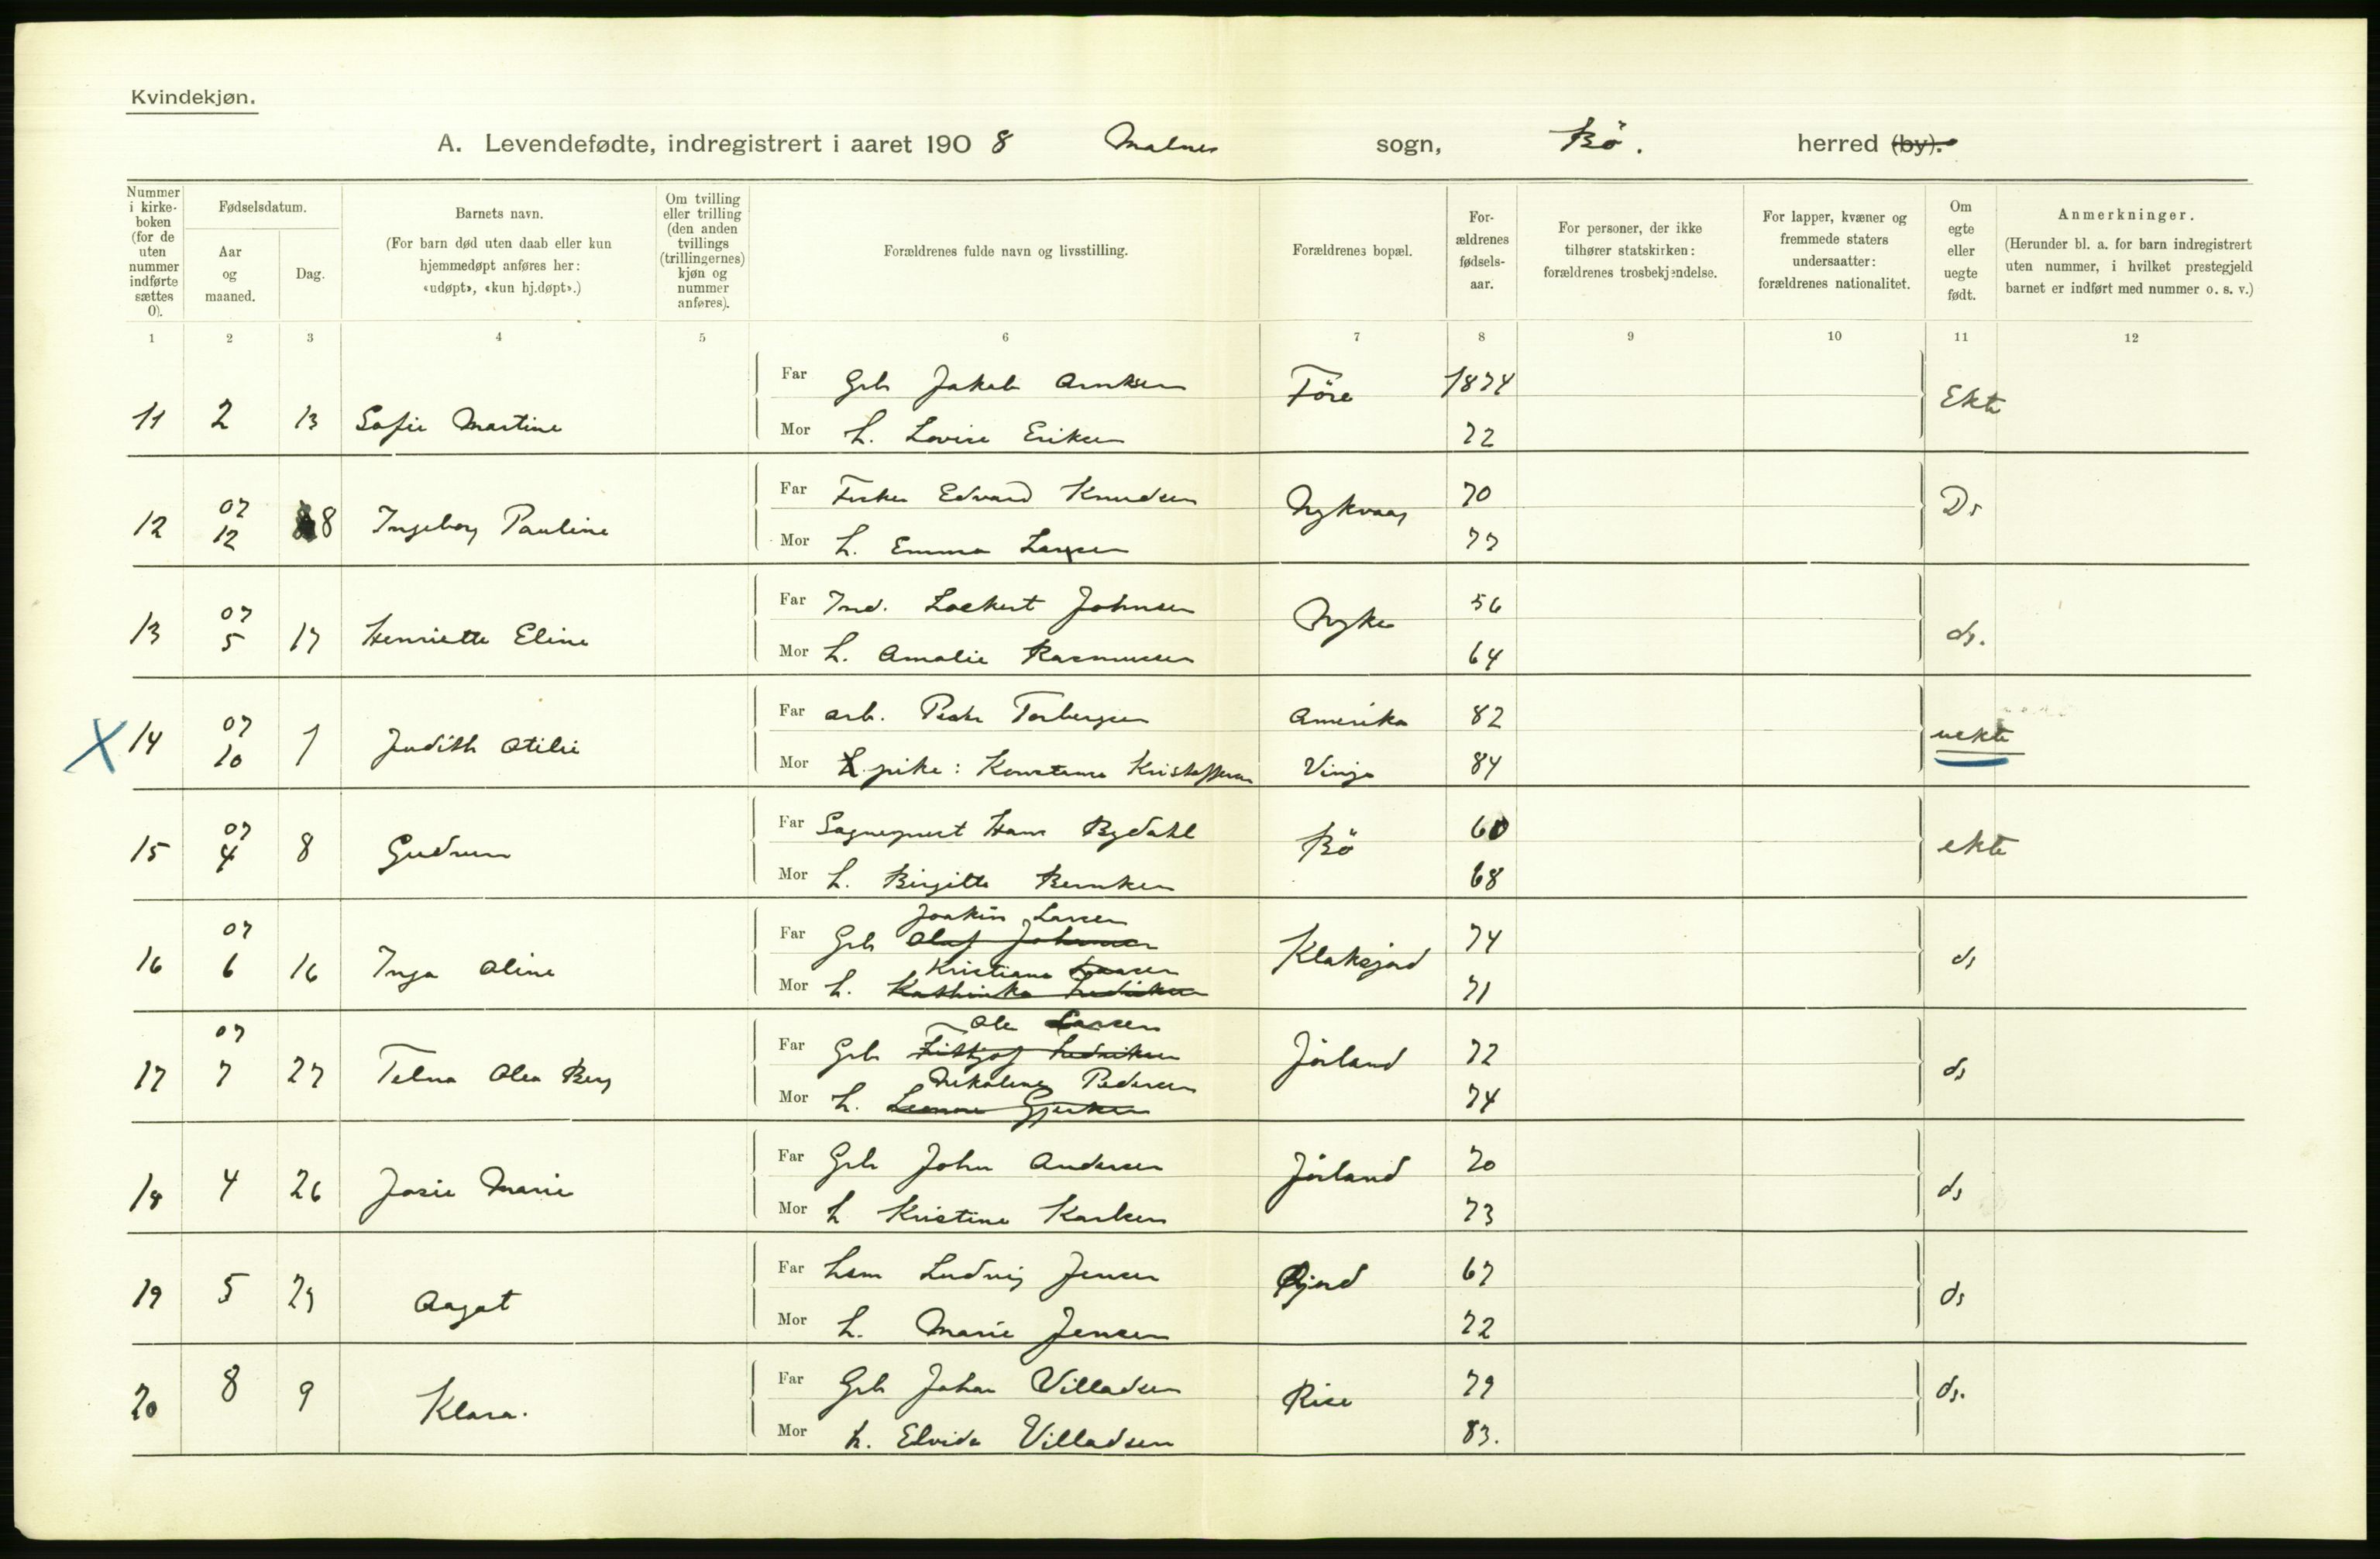 Kvindekjøn.
A. Levendefødte, indregistrert i aaret 1908 Malnes sogn, Bö. herred (by).
Nummer i kirkeboken (for de uten nummer indførte sættes 0).
Fødselsdatum.
Aar og maaned.
Dag.
Barnets navn.
(For barn død uten daab eller kun hjemmedøpt anføres her: «udøpt», «kun hj.døpt».)
Om tvilling eller trilling (den anden tvillings (trillingernes) kjøn og nummer anføres).
Forældrenes fulde navn og livsstilling.
Forældrenes bopæl.
For-ældrenes fødsels-aar.
For personer, der ikke tilhører statskirken: forældrenes trosbekjendelse.
For lapper, kvæner og fremmede staters undersaatter: forældrenes nationalitet.
Om egte eller uegte født.
Anmerkninger.
(Herunder bl. a. for barn indregistrert uten nummer, i hvilket prestegjeld barnet er indført med nummer o. s. v.)
1 2 3 4 5 6 7 8 9 10 11 12
11 2 13 Sofie Martine Far Grb Jakob Arntsen Före 1874 Ekte
Mor h. Lovise Eriksen 72
12 07 12 8 Ingeborg Pauline Far Fisker Edvard Knudsen Nykvaag 70 Do
Mor h. Emma Larsen 77
13 07 5 17 Henriette Eline Far Ind. Lockert Johnsen Nyke 56 do.
Mor h. Amalie Rasmussen 64
X 14 07 10 1 Judith Otilie Far arb. Peder Torbergsen Amerika 82 uekte
Mor pike: Konstanse Kristoffersen Vinje 84
15 07 4 8 Gudrun Far Sogneprest Hans Rydahl Bö 60 ekte
Mor h. Birgitte Berntsen 68
16 07 6 16 Inga Aline Far Grb Joakin Larsen Olaf Johansen Klaksjord 74 do
Mor h. Kristiane Kathinka 71
17 07 7 27 Telna Olea Berg Far Grb Ole Larsen Fritjof Fredriksen Jörland 72 do
Mor h. Nikoline Pedersen 74
18 4 26 Josie Marie Far Grb John Andersen Jörland 70 do
Mor h Kristine Karlsen 73
19 5 29 Aagot Far Hsm Ludvig Jensen 67 do
Mor h. Marie Jensen 72
20 8 9 Klara. Far Grb Johan Villadsen Rise 79 do.
Mor h. Elvida Villadsen 83.